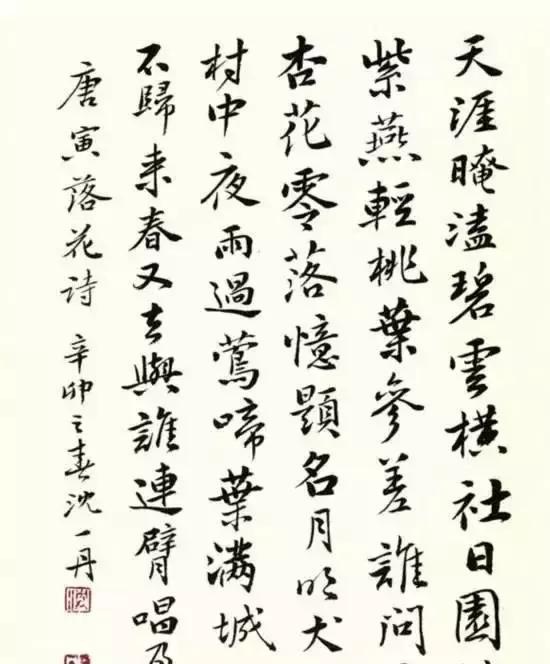 天涯晻溘碧雲橫社日園
紫燕輕桃葉參差誰問
杏花零落憶題名月明犬
村中夜雨過鶯啼葉滿城
不歸來春又去與誰連臂唱
唐寅落花詩 辛卯之春沈一丹